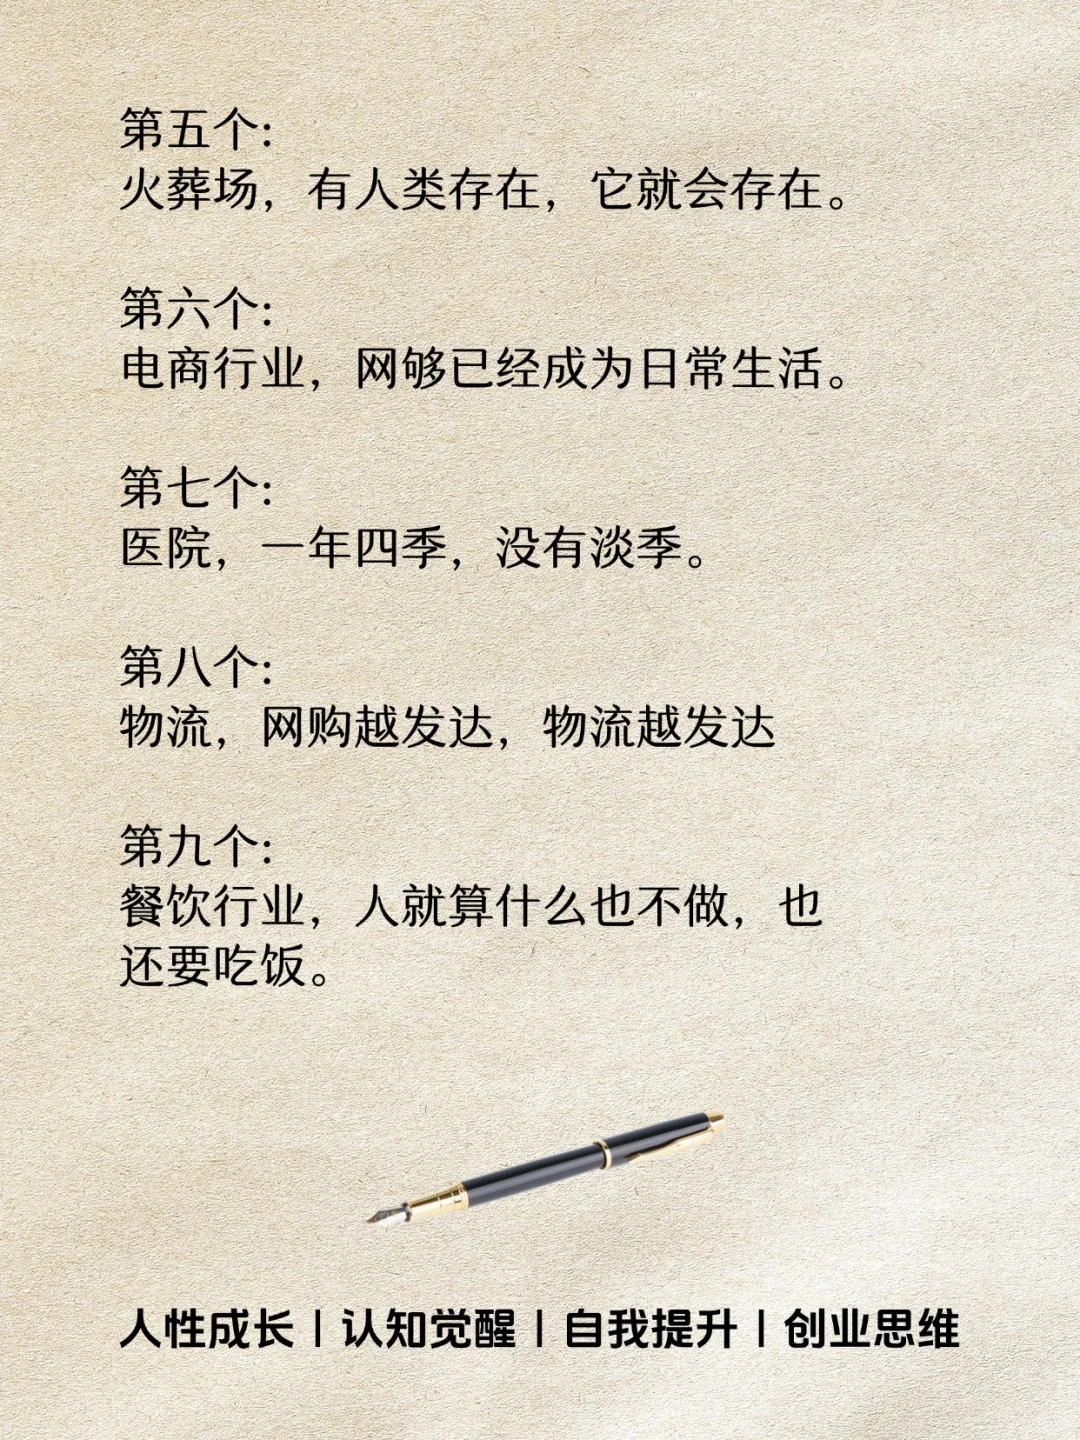 第五个:
火葬场，有人类存在，它就会存在。
第六个:
电商行业，网够已经成为日常生活。
第七个:
医院，一年四季，没有淡季。
第八个:
物流，网购越发达，物流越发达
第九个:
餐饮行业，人就算什么也不做，也
还要吃饭。
人性成长丨认知觉醒丨自我提升丨创业思维